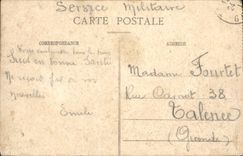 Service Militaire
CARTE POSTALE
CORRESPONDANCE
ADRESSE
Suis en bonne Santé
Ne reçois pas de vos
nouvelles
Emile
Madame Fourtet
Rue Carnot 38
Talence
(Gironde)